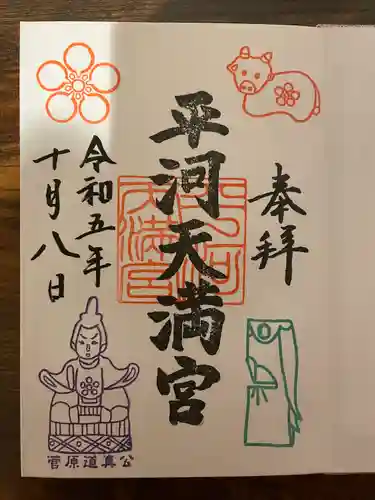 奉拝
平河天満宮
平河天満宮
令和五年
十月八日
菅原道真公